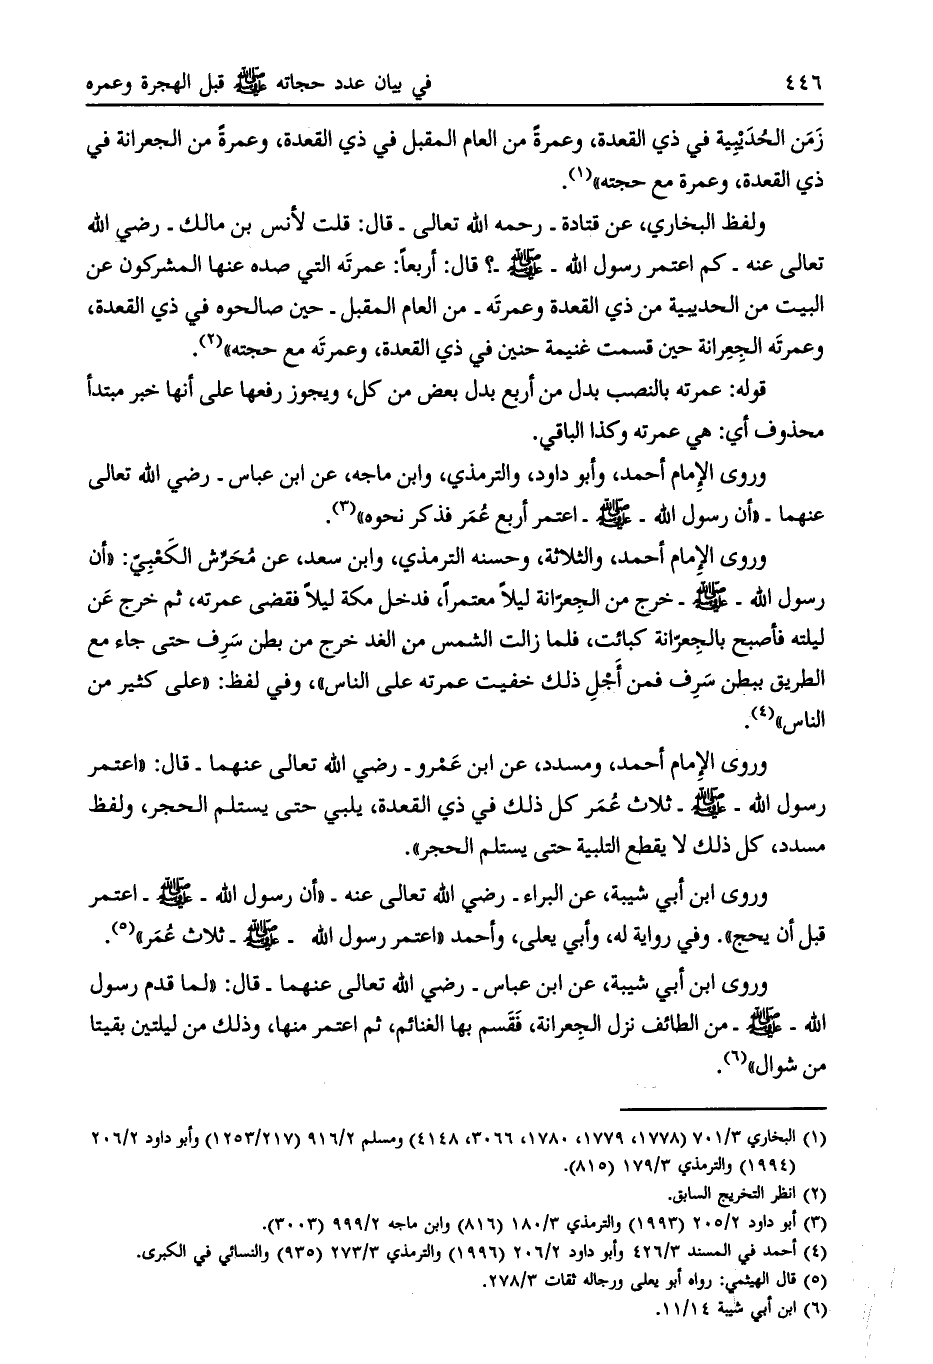 ٤٤٦ في بيان عدد حجاته ﷺ قبل الهجرة وعمره
زَمَن الحُدَيْبِية في ذي القعدة، وعمرةً من العام المقبل في ذي القعدة، وعمرةً من الجعرانة في
ذي القعدة، وعمرة مع حجته»(١).
ولفظ البخاري، عن قتادة ـ رحمه الله تعالى ـ قال: قلت لأنس بن مالك ـ رضي الله
تعالى عنه ـ كم اعتمر رسول الله ـ ﷺ ـ؟ قال: أربعاً: عمرتَه التي صده عنها المشركون عن
البيت من الحديبية من ذي القعدة وعمرتَه ـ من العام المقبل ـ حين صالحوه في ذي القعدة،
وعمرتَه الجِعِرانة حين قسمت غنيمة حنين في ذي القعدة، وعمرتَه مع حجته»(٢).
قوله: عمرته بالنصب بدل من أربع بدل بعض من كل، ويجوز رفعها على أنها خبر مبتدأ
محذوف أي: هي عمرته وكذا الباقي.
وروى الإِمام أحمد، وأبو داود، والترمذي، وابن ماجه، عن ابن عباس ـ رضي الله تعالى
عنهما ـ «أن رسول الله ـ ﷺ ـ اعتمر أربع عُمَر فذكر نحوه»(٣).
وروى الإِمام أحمد، والثلاثة، وحسنه الترمذي، وابن سعد، عن مُحَرِّش الكَعْبِيّ: «أن
رسول الله ـ ﷺ ـ خرج من الجِعرّانة ليلاً معتمراً، فدخل مكة ليلاً فقضى عمرته، ثم خرج عَن
ليلته فأصبح بالجِعرّانة كبائت، فلما زالت الشمس من الغد خرج من بطن سَرِف حتى جاء مع
الطريق ببطن سَرِف فمن أَجْلِ ذلك خفيت عمرته على الناس»، وفي لفظ: «على كثير من
الناس»(٤).
وروى الإِمام أحمد، ومسدد، عن ابن عَمْرو ـ رضي الله تعالى عنهما ـ قال: «اعتمر
رسول الله ـ ﷺ ـ ثلاث عُمَر كل ذلك في ذي القعدة، يلبي حتى يستلم الحجر، ولفظ
مسدد، كل ذلك لا يقطع التلبية حتى يستلم الحجر».
وروى ابن أبي شيبة، عن البراء ـ رضي الله تعالى عنه ـ «أن رسول الله ـ ﷺ ـ اعتمر
قبل أن يحج». وفي رواية له، وأبي يعلى، وأحمد «اعتمر رسول الله ـ ﷺ ـ ثلاث عُمَر»(٥).
وروى ابن أبي شيبة، عن ابن عباس ـ رضي الله تعالى عنهما ـ قال: «لما قدم رسول
الله ـ ﷺ ـ من الطائف نزل الجِعرانة، فَقَسم بها الغنائم، ثم اعتمر منها، وذلك من ليلتين بقيتا
من شوال»(٦).
(١) البخاري ٧٠١/٣ (١٧٧٨، ١٧٧٩، ١٧٨٠، ٣٠٦٦، ٤١٤٨) ومسلم ٩١٦/٢ (١٢٥٣/٢١٧) وأبو داود ٢٠٦/٢
(١٩٩٤) والترمذي ١٧٩/٣ (٨١٥).
(٢) انظر التخريج السابق.
(٣) أبو داود ٢٠٥/٢ (١٩٩٣) والترمذي ١٨٠/٣ (٨١٦) وابن ماجه ٩٩٩/٢ (٣٠٠٣).
(٤) أحمد في المسند ٤٢٦/٣ وأبو داود ٢٠٦/٢ (١٩٩٦) والترمذي ٢٧٣/٣ (٩٣٥) والنسائي في الكبرى.
(٥) قال الهيثمي: رواه أبو يعلى ورجاله ثقات ٢٧٨/٣.
(٦) ابن أبي شيبة ١١/١٤.